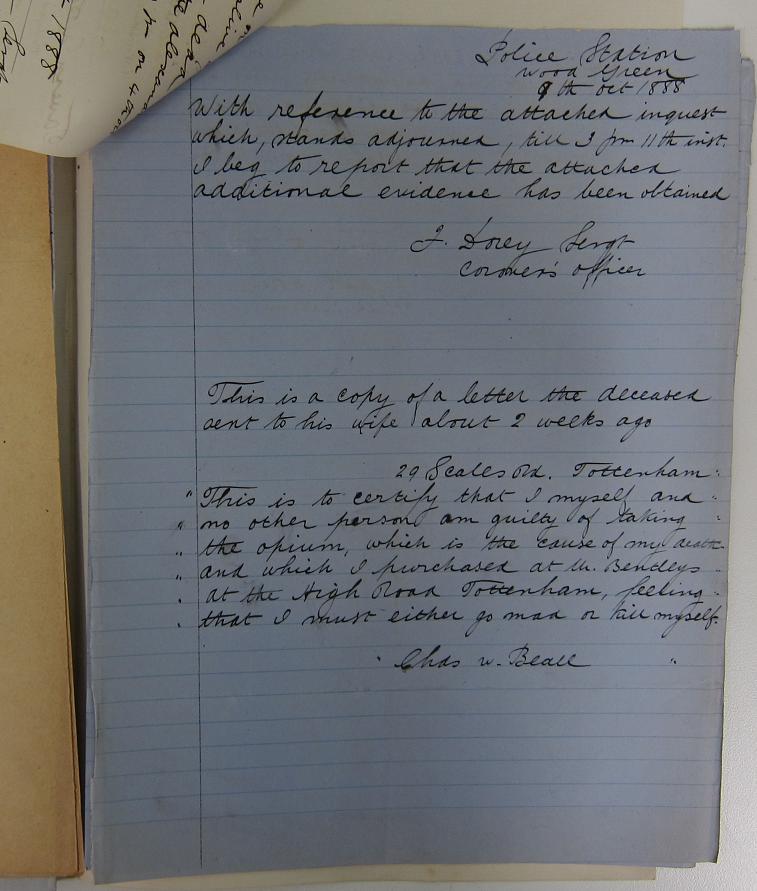 1888
Police Station
Wood Green
9th Oct 1888
With reference to the attached inquest
which, stands adjourned, till 3 pm 11th inst.
I beg to report that the attached
additional evidence has been obtained
J. Dorey Sergt
Coroner's officer
This is a copy of a letter the deceased
sent to his wife about 2 weeks ago
29 Scales Rd. Tottenham
"This is to certify that I myself and "
" no other person am guilty of taking "
" the opium, which is the cause of my death
" and which I purchased at Mr. Bentleys "
" at the High Road Tottenham, feeling "
" that I must either go mad or kill myself.
" Chas W. Beall "